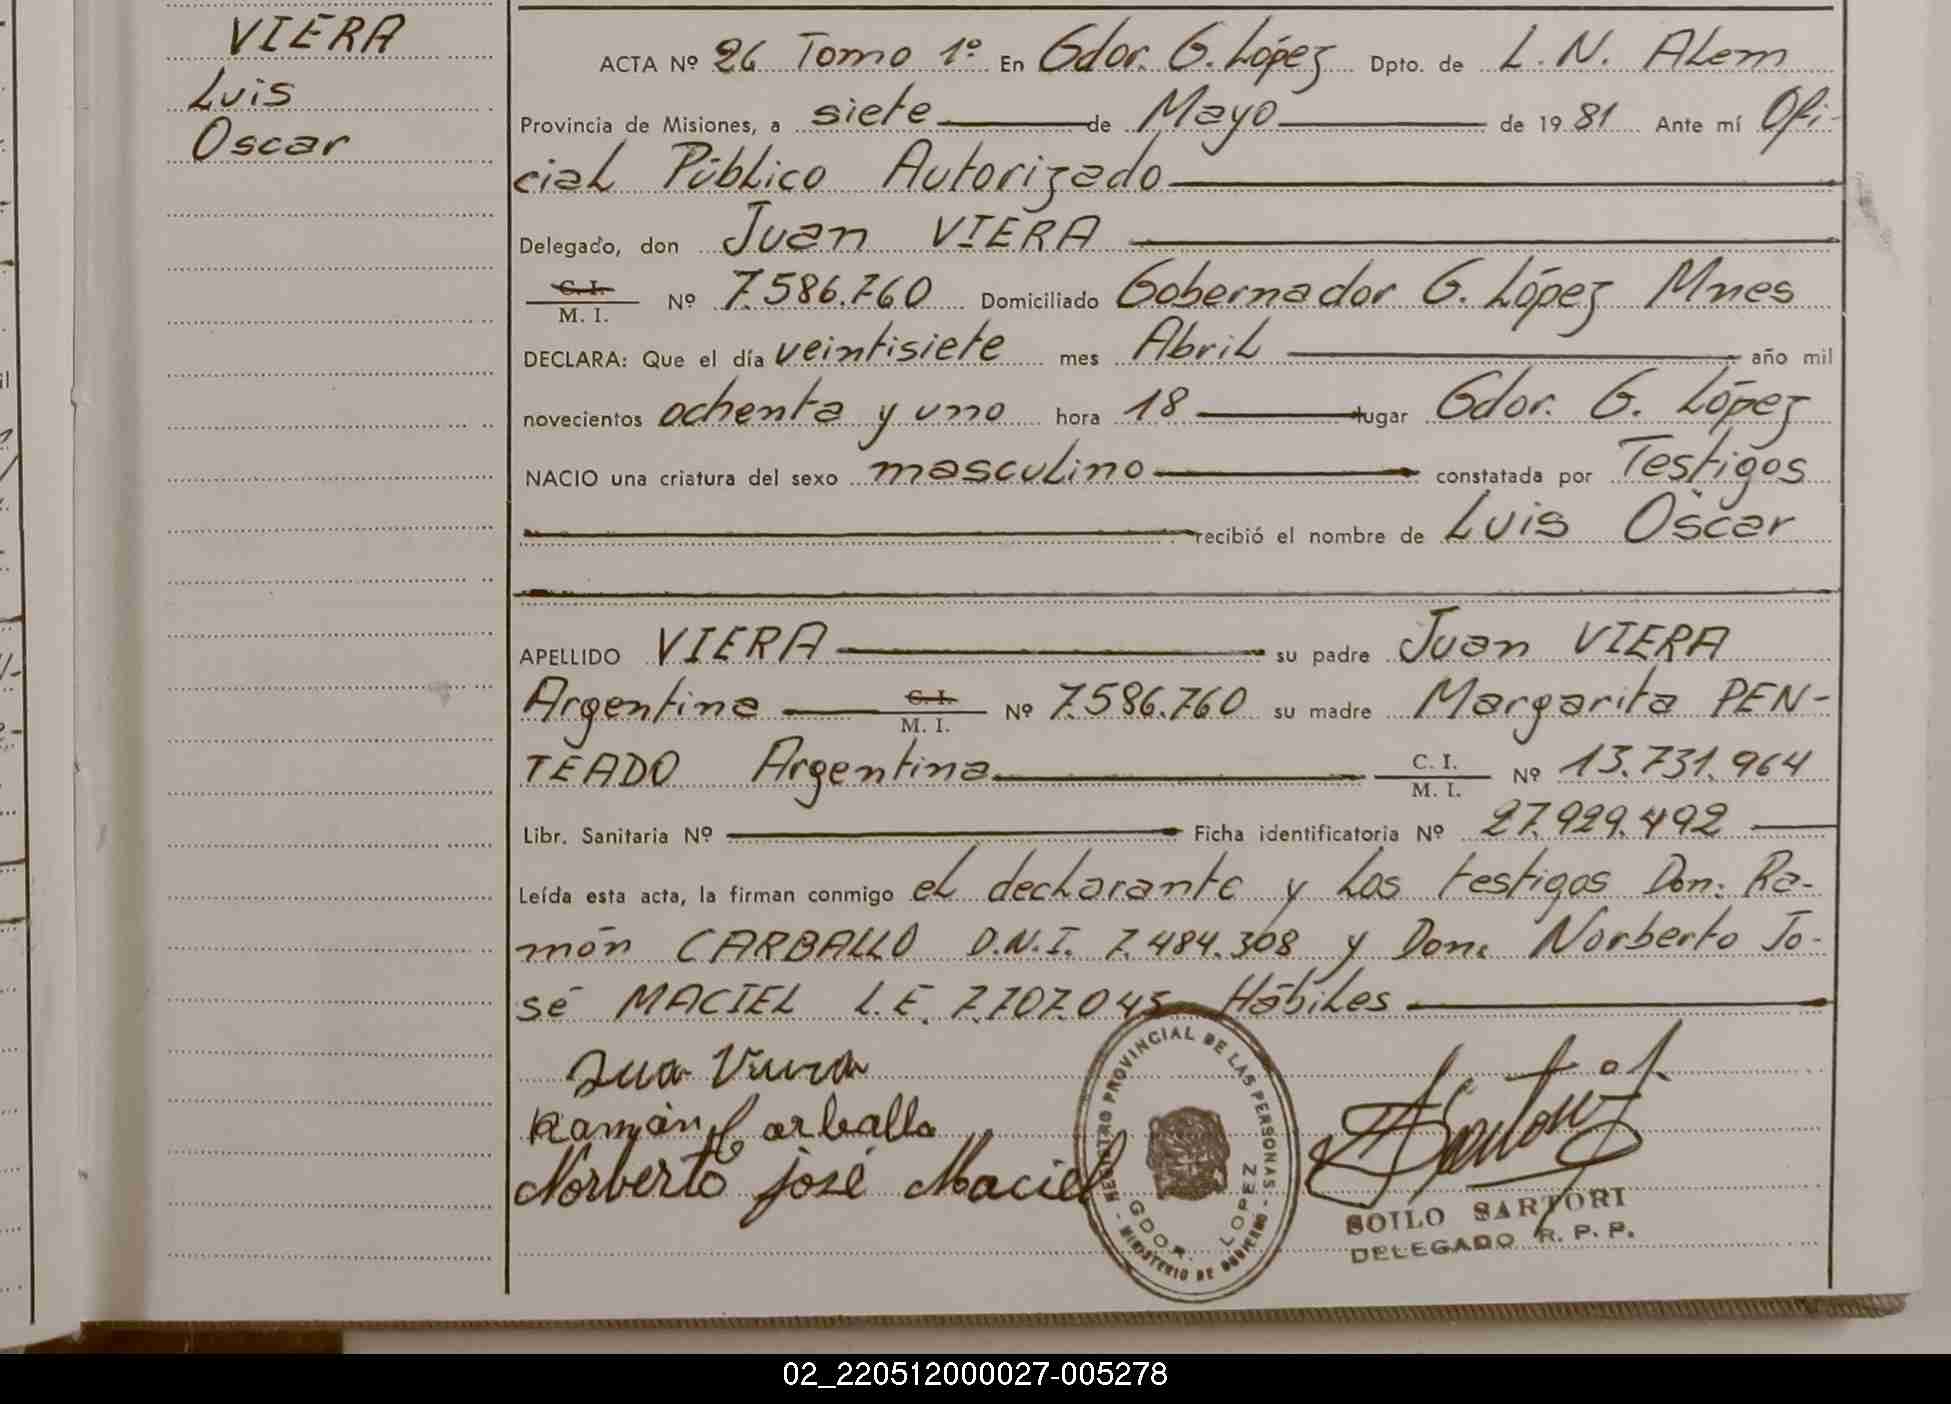 VIERA
Luis
Oscar
ACTA Nº 26 Tomo 1º En Gdor. G. López Dpto. de L. N. Alem
Provincia de Misiones, a siete de Mayo de 1981 Ante mí Ofi-
cial Público Autorizado
Delegado, don Juan VIERA
C. I.
M. I. Nº 7.586.760 Domiciliado Gobernador G. López Mnes
DECLARA: Que el día veintisiete mes Abril año mil
novecientos ochenta y uno hora 18 lugar Gdor. G. López
NACIO una criatura del sexo masculino constatada por Testigos
recibió el nombre de Luis Oscar
APELLIDO VIERA su padre Juan VIERA
Argentina C. I.
M. I. Nº 7.586.760 su madre Margarita PEN-
TEADO Argentina C. I.
M. I. Nº 13.731.964
Libr. Sanitaria Nº Ficha identificatoria Nº 27.929.492
Leída esta acta, la firman conmigo el declarante y los testigos Don: Ra-
món CARBALLO D.N.I. 7.484.308 y Don: Norberto Jo-
sé MACIEL L.E. 7.707.045 Hábiles
Ramón Carballo
Norberto josé Maciel
REGISTRO PROVINCIAL DE LAS PERSONAS
GDOR. LOPEZ
MINISTERIO DE GOBIERNO
SOILO SARTORI
DELEGADO R. P. P.
02_220512000027-005278